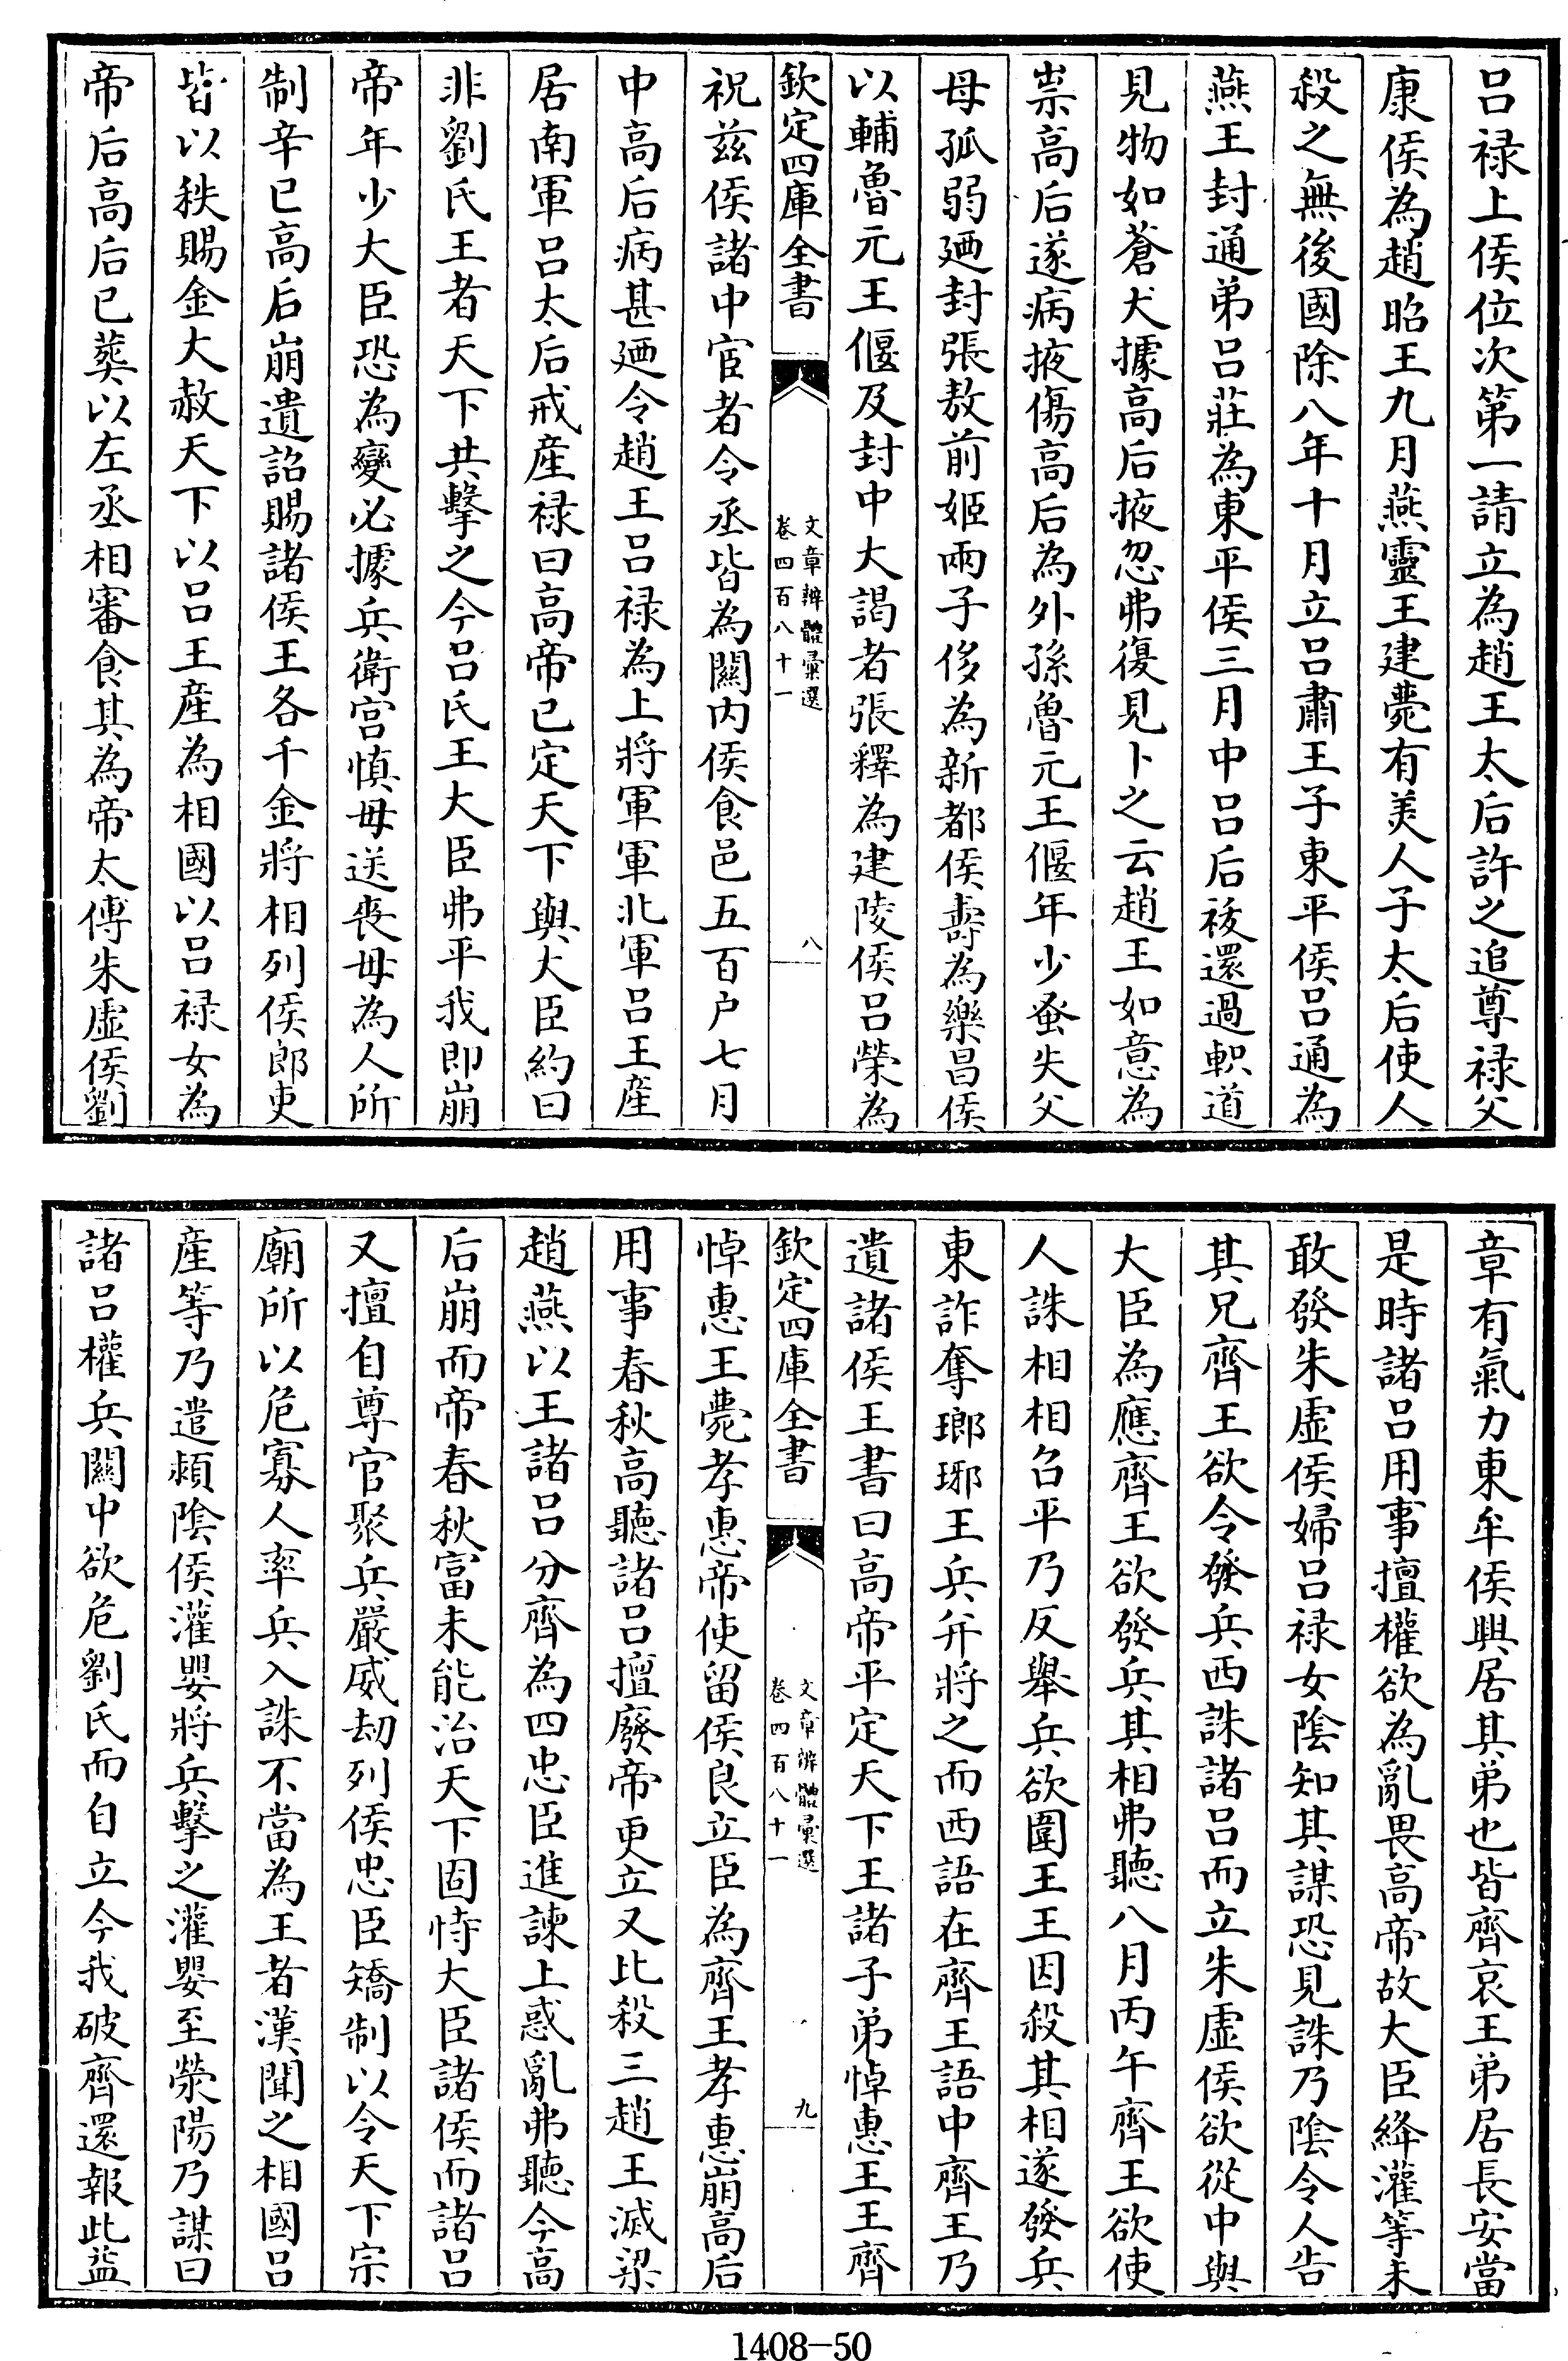 呂禄上侯位次第一請立為趙王太后許之追尊禄父
康侯為趙昭王九月燕靈王建薨有美人子太后使人
殺之無後國除八年十月立呂肅王子東平侯呂通為
燕王封通弟呂莊為東平侯三月中呂后祓還過軹道
見物如蒼犬據高后掖忽弗復見卜之云趙王如意為
祟高后遂病掖傷高后為外孫魯元王偃年少蚤失父
母孤弱廼封張敖前姬兩子侈為新都侯壽為樂昌侯
以輔魯元王偃及封中大謁者張釋為建陵侯呂榮為
欽定四庫全書
文章辨體彙選
卷四百八十一
八
祝兹侯諸中宦者令丞皆為關内侯食邑五百户七月
中高后病甚廼令趙王呂禄為上將軍軍北軍呂王産
居南軍呂太后戒産禄曰高帝已定天下與大臣約曰
非劉氏王者天下共擊之今呂氏王大臣弗平我即崩
帝年少大臣恐為變必據兵衛宫慎毋送喪毋為人所
制辛已高后崩遺詔賜諸侯王各千金將相列侯郎吏
皆以秩賜金大赦天下以呂王産為相國以呂禄女為
帝后高后已葬以左丞相審食其為帝太傅朱虛侯劉
章有氣力東牟侯興居其弟也皆齊哀王弟居長安當
是時諸呂用事擅權欲為亂畏高帝故大臣絳灌等未
敢發朱虛侯婦呂禄女隂知其謀恐見誅乃隂令人告
其兄齊王欲令發兵西誅諸呂而立朱虛侯欲從中與
大臣為應齊王欲發兵其相弗聽八月丙午齊王欲使
人誅相相召平乃反舉兵欲圍王王因殺其相遂發兵
東詐奪瑯琊王兵并將之而西語在齊王語中齊王乃
遺諸侯王書曰高帝平定天下王諸子弟悼惠王王齊
欽定四庫全書
文章辨體彙選
卷四百八十一
九
悼惠王薨孝惠帝使留侯良立臣為齊王孝惠崩高后
用事春秋高聽諸呂擅廢帝更立又比殺三趙王滅梁
趙燕以王諸呂分齊為四忠臣進諫上惑亂弗聽今高
后崩而帝春秋富未能治天下固恃大臣諸侯而諸呂
又擅自尊官聚兵嚴威刧列侯忠臣矯制以令天下宗
廟所以危寡人率兵入誅不當為王者漢聞之相國呂
産等乃遣潁隂侯灌嬰將兵擊之灌嬰至滎陽乃謀曰
諸呂權兵關中欲危劉氏而自立今我破齊還報此益
1408-50